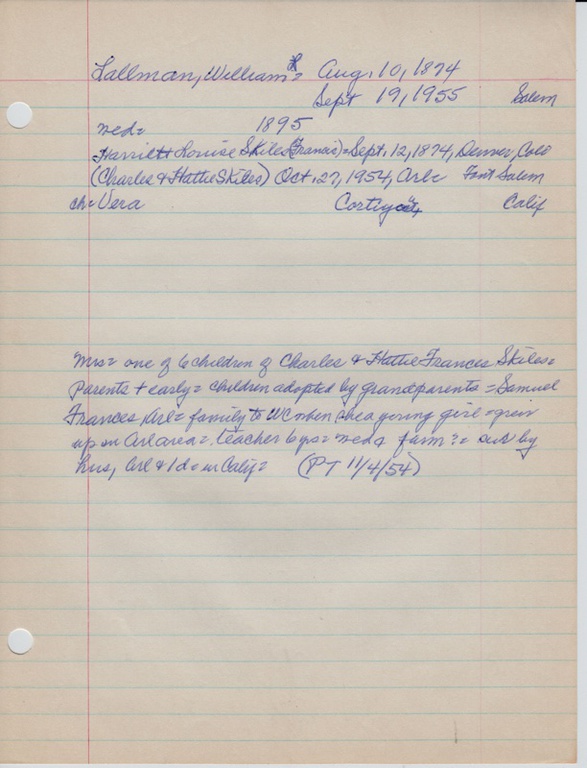 Lallman, William = Aug. 10, 1874
Sept 19, 1955 Salem
med = 1895
Harriett Louise Skiles (Francis) = Sept. 12, 1874, Denver, Colo
(Charles & Hattie Skiles) Oct. 27, 1954, Arl = Salem
ch = Vera Calif
Mrs = one of 6 children of Charles & Hattie Frances Skiles =
parents + early = children adopted by grandparents = Samuel
Frances, Arl = family to WC when she a young girl = grew
up in Arl area = teacher 6 yrs = med & farm = sur by
hus, Arl & 1 d = in Calif = (PT 11/4/54)